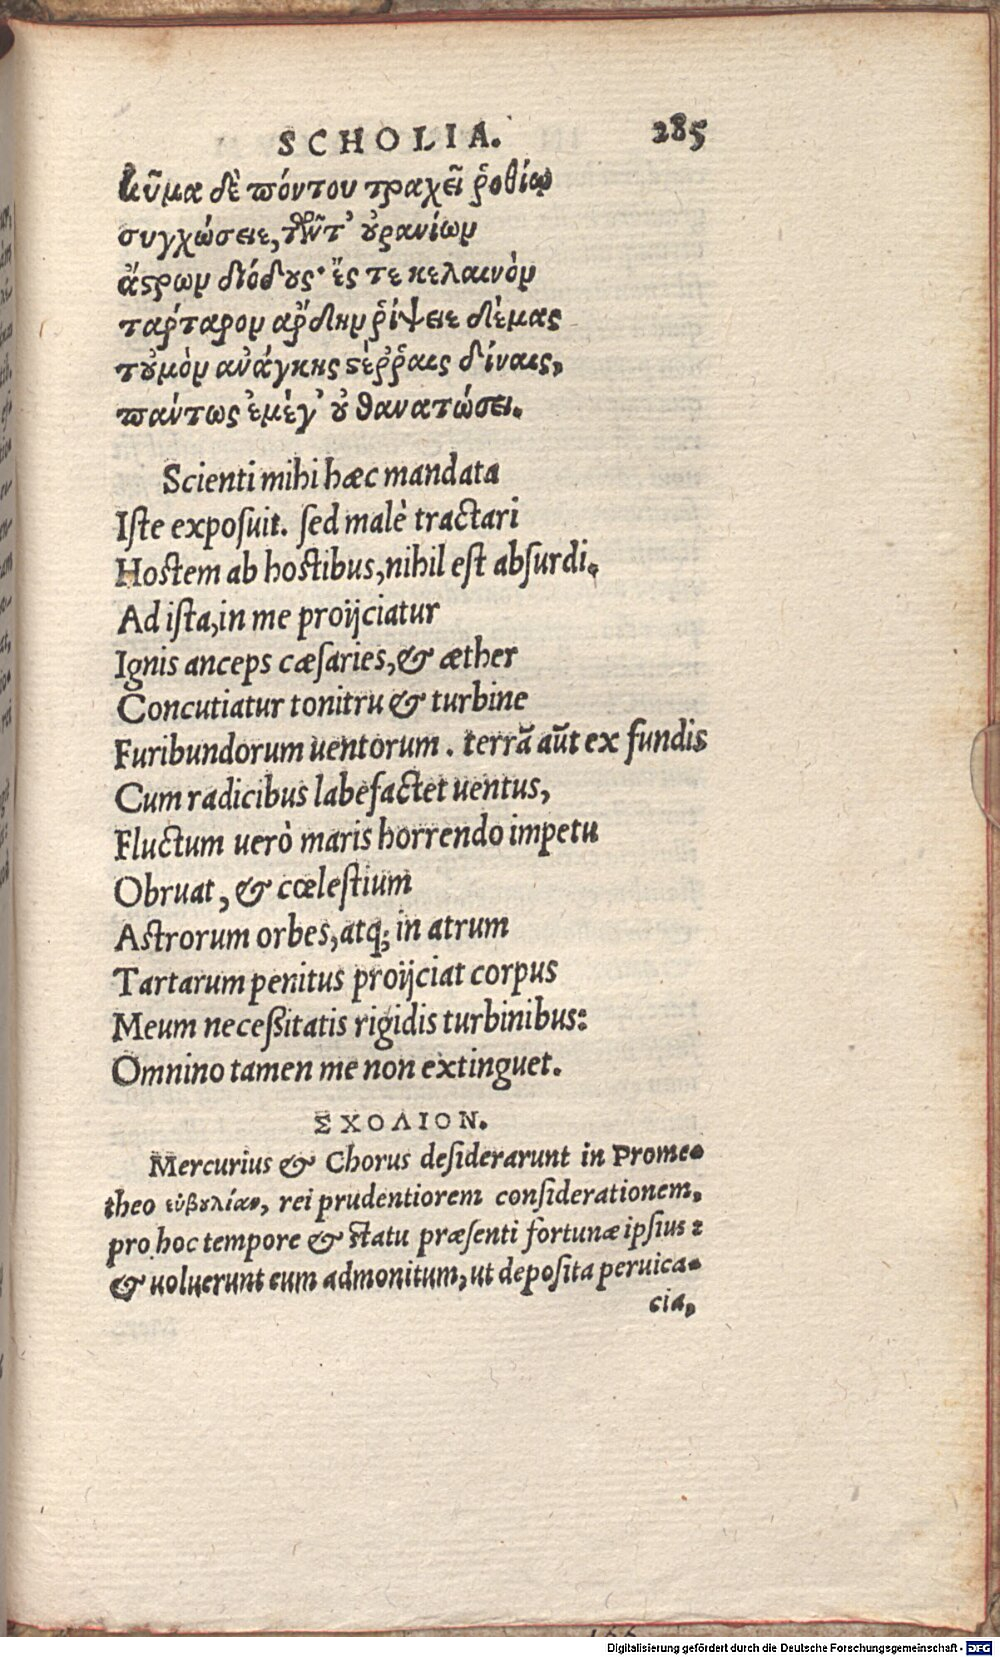 SCHOLIA. 285
κῦμα δὲ πόντου τραχεῖ ῥοθίῳ
συγχώσειε, τῶντ' οὐρανίων
ἄστρων διόδους· ἔς τε κελαινὸν
τάρταρον ἄρδην ῥίψειε δέμας
τοὐμὸν ἀνάγκης στεῤῥαῖς δίναις,
πάντως ἐμέγ' οὐ θανατώσει.
Scienti mihi hæc mandata
Iſte expoſuit. ſed malè tractari
Hostem ab hostibus, nihil eſt abſurdi.
Ad iſta, in me proijciatur
Ignis anceps cæſaries, & æther
Concutiatur tonitru & turbine
Furibundorum uentorum. terrã aũt ex fundis
Cum radicibus labefactet uentus,
Fluctum uerò maris horrendo impetu
Obruat, & cœleſtium
Astrorum orbes, atq; in atrum
Tartarum penitus proijciat corpus
Meum neceßitatis rigidis turbinibus:
Omnino tamen me non extinguet.
ΣΧΟΛΙΟΝ.
Mercurius & Chorus deſiderarunt in Prome-
theo εὐβουλίαν, rei prudentiorem conſiderationem,
pro hoc tempore & statu præſenti fortunæ ipſius:
& uoluerunt eum admonitum, ut depoſita peruica-
cia,
Digitalisierung gefördert durch die Deutsche Forschungsgemeinschaft - DFG